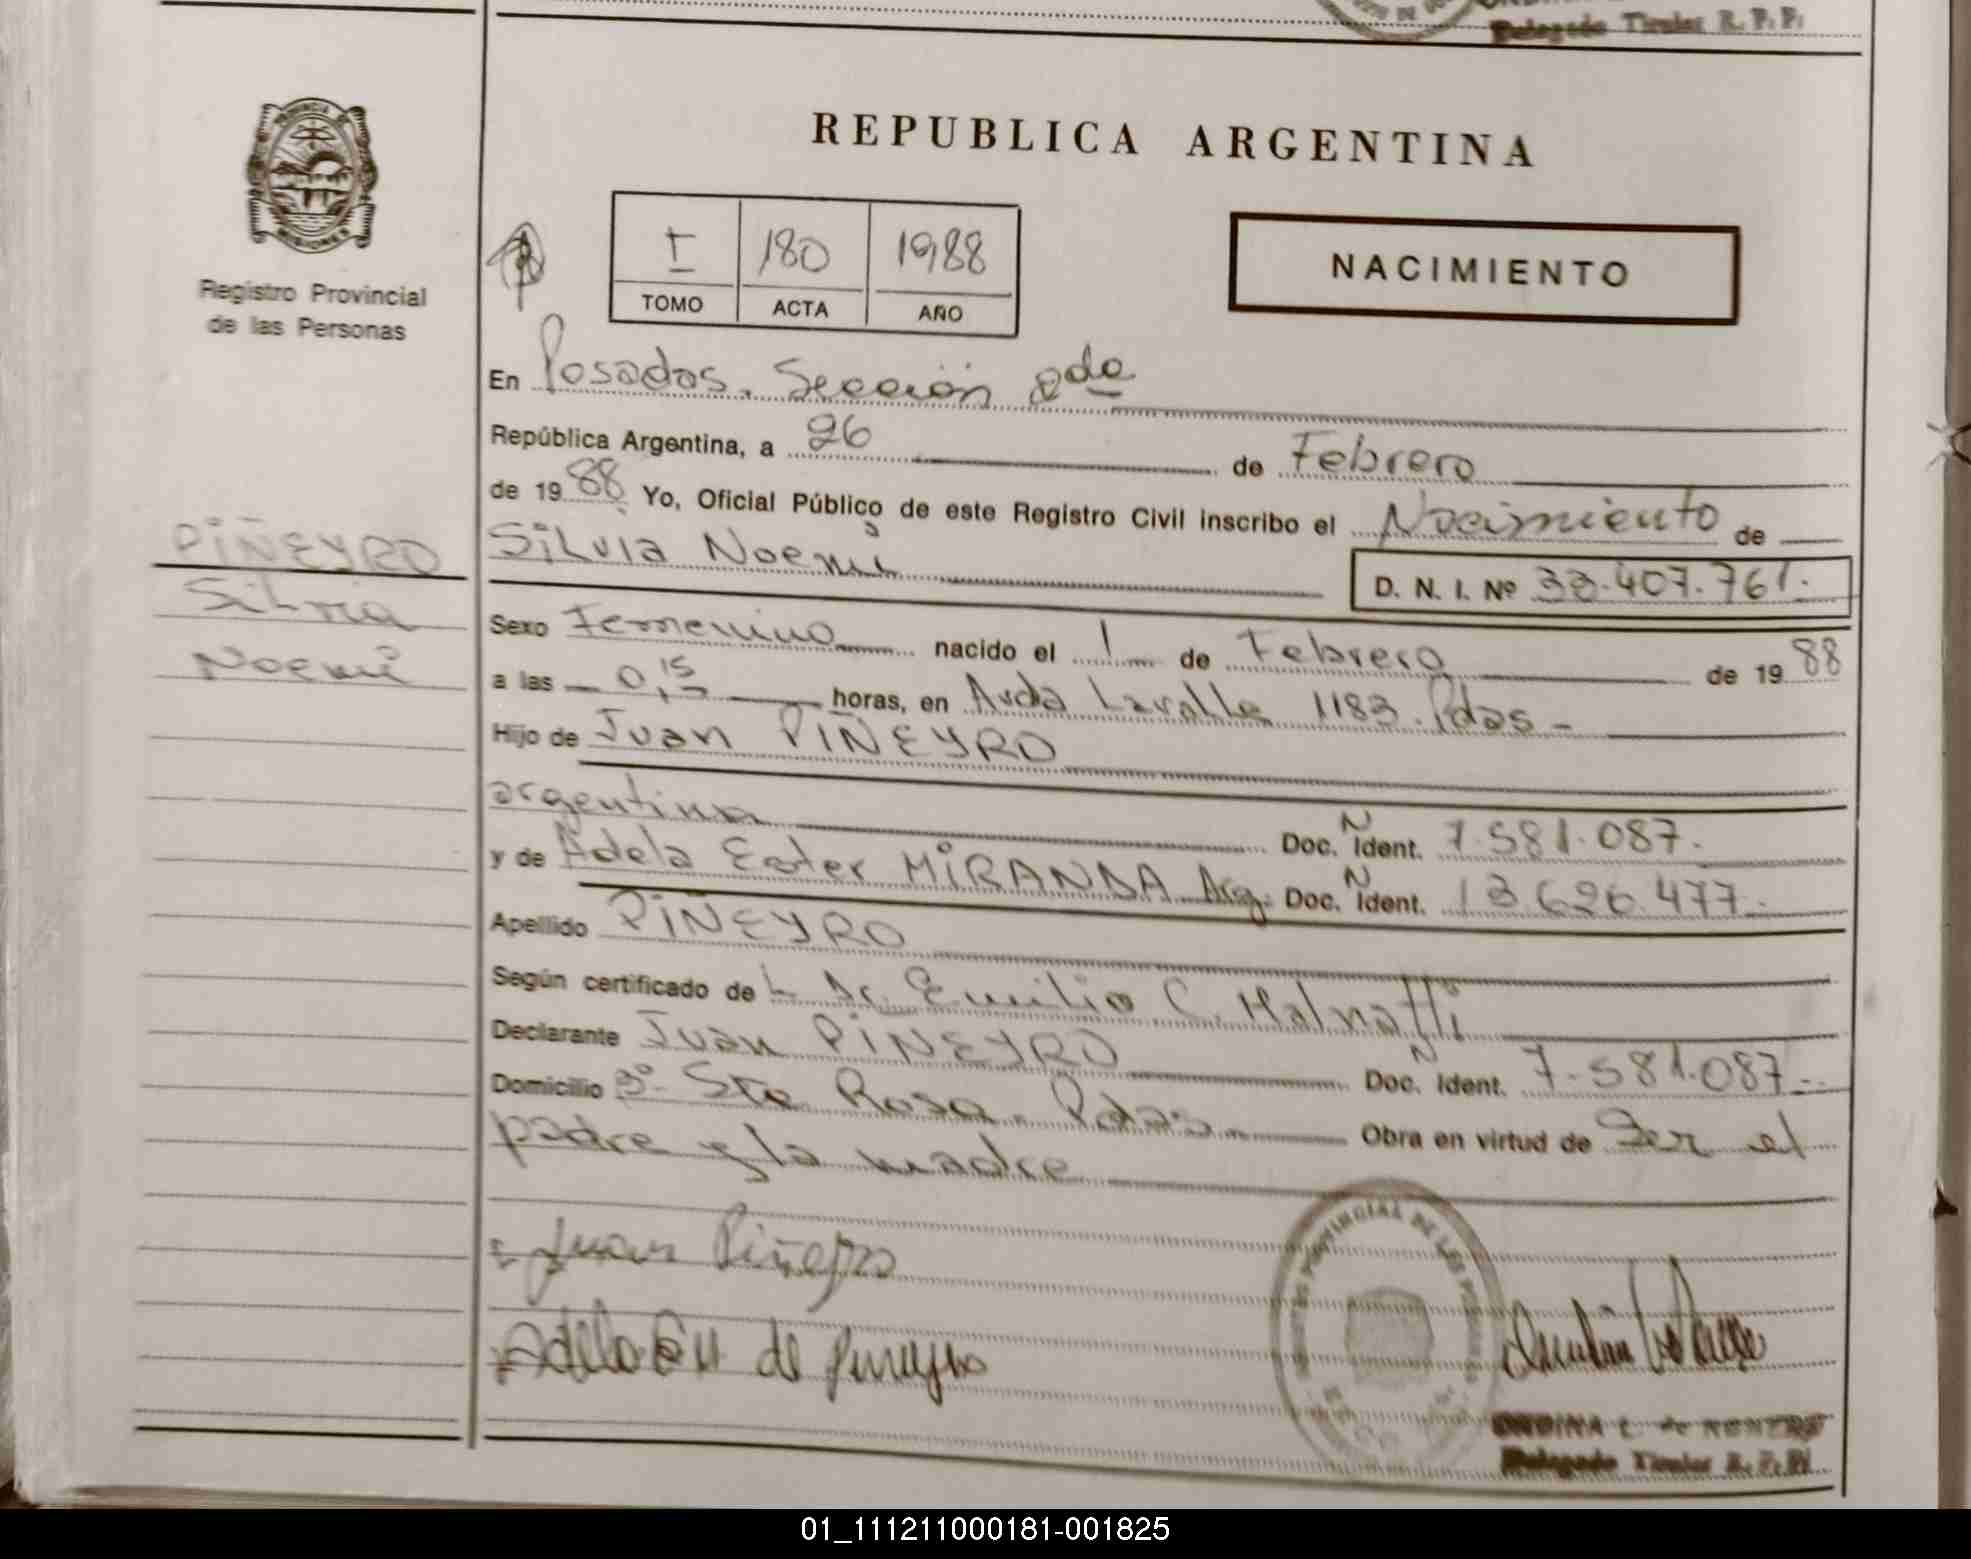 Delegado Titular R. P. P.
PROVINCIA DE
MISIONES
Registro Provincial
de las Personas
REPUBLICA ARGENTINA
I 180 1988
TOMO ACTA AÑO
NACIMIENTO
En Posadas. Sección 2da
República Argentina, a 26 de Febrero
de 1988 Yo, Oficial Público de este Registro Civil inscribo el Nacimiento de
PIÑEYRO
Silvia
Noemí
Silvia Noemí
D. N. I. Nº 33.407.761.
Sexo Femenino nacido el 1 de Febrero de 1988
a las 0,15 horas, en Avda Lavalle 1183. Pdas -
Hijo de Juan PIÑEYRO
argentina Doc. N Ident. 7.581.087.
y de Adela Ester MIRANDA Arg. Doc. N Ident. 13.626.477.
Apellido PIÑEYRO
Según certificado de L Dr. Emilio C. Malnatti
Declarante Juan PIÑEYRO Doc. N Ident. 7.581.087.
Domicilio Bº Sta Rosa. Pdas. Obra en virtud de Ser el
padre y la madre
Juan Piñeyro
Adela E M de Pineyro
PROVINCIAL DE LAS
Delegado Titular R. P. P.
01_111211000181-001825